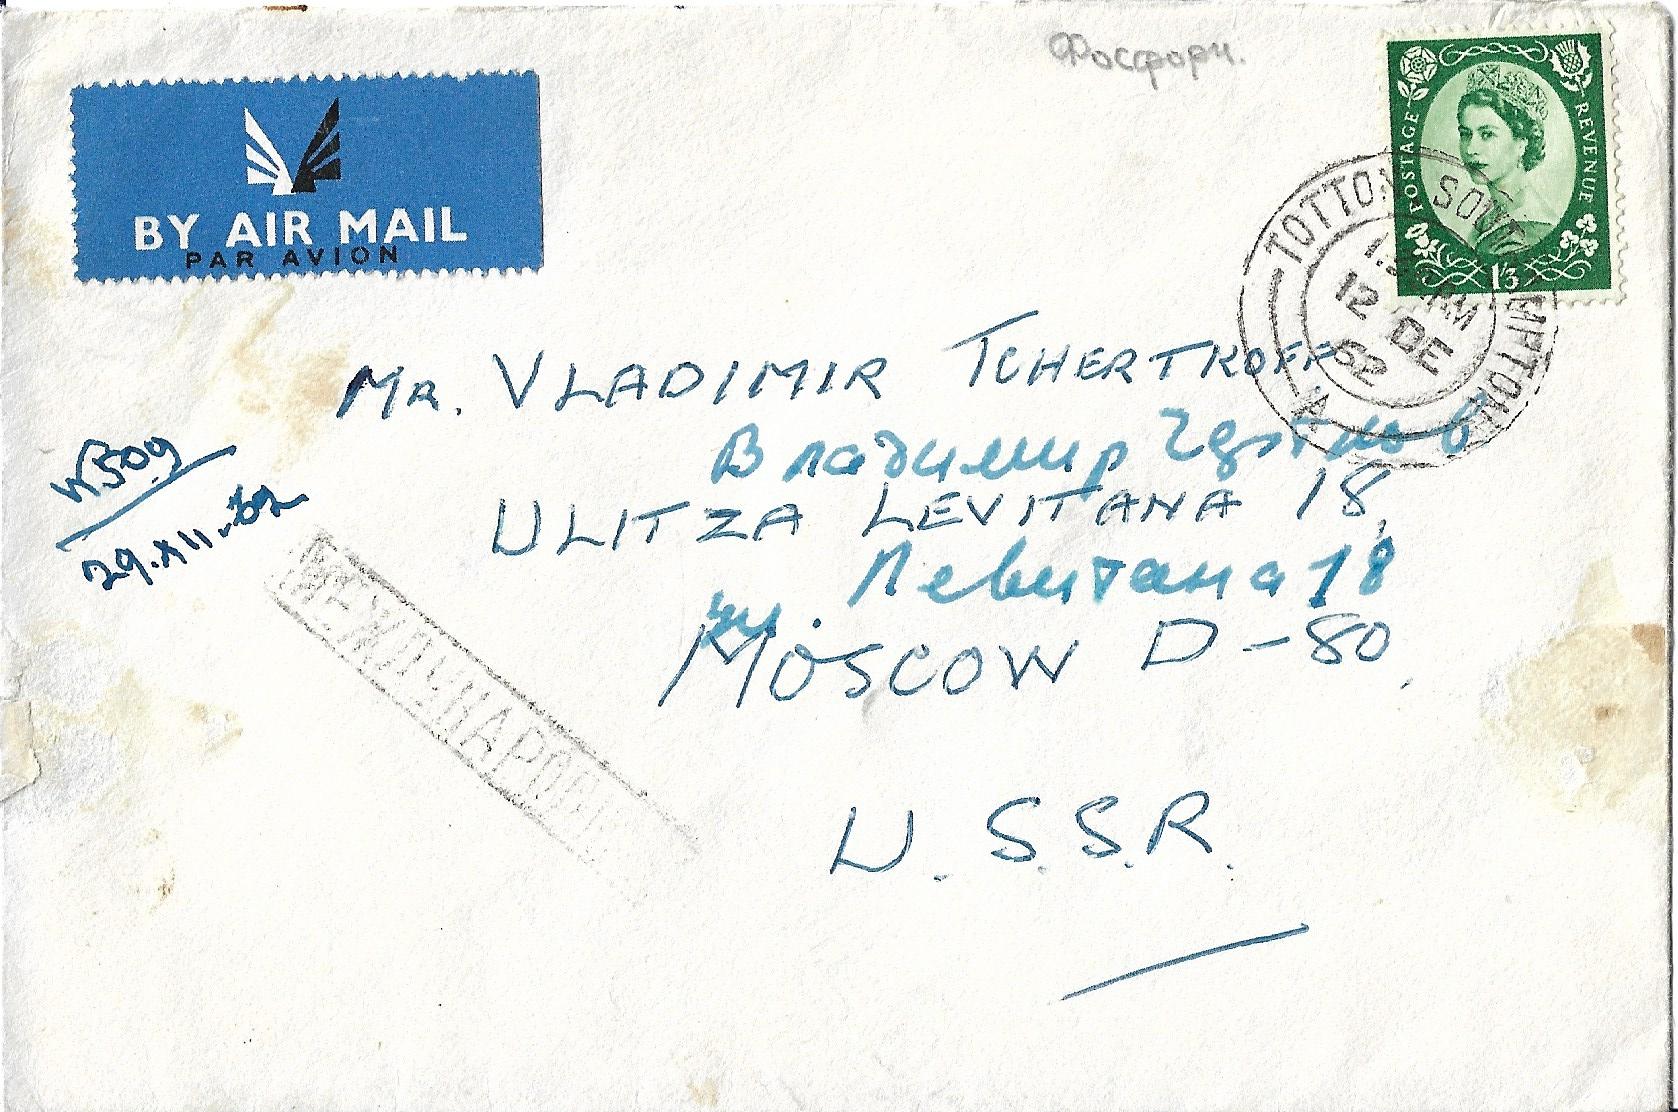 Фосфорн.
POSTAGE REVENUE
1/3
BY AIR MAIL
PAR AVION
TOTTON SOUTHAMPTON
12 DE
62
A
MR. VLADIMIR TCHERTKOFF
Владимир
ULITZA LEVITANA 18,
ул. Левитана 18
MOSCOW D-80.
U.S.S.R.
29.XII.62
МЕЖДУНАРОДНОЕ